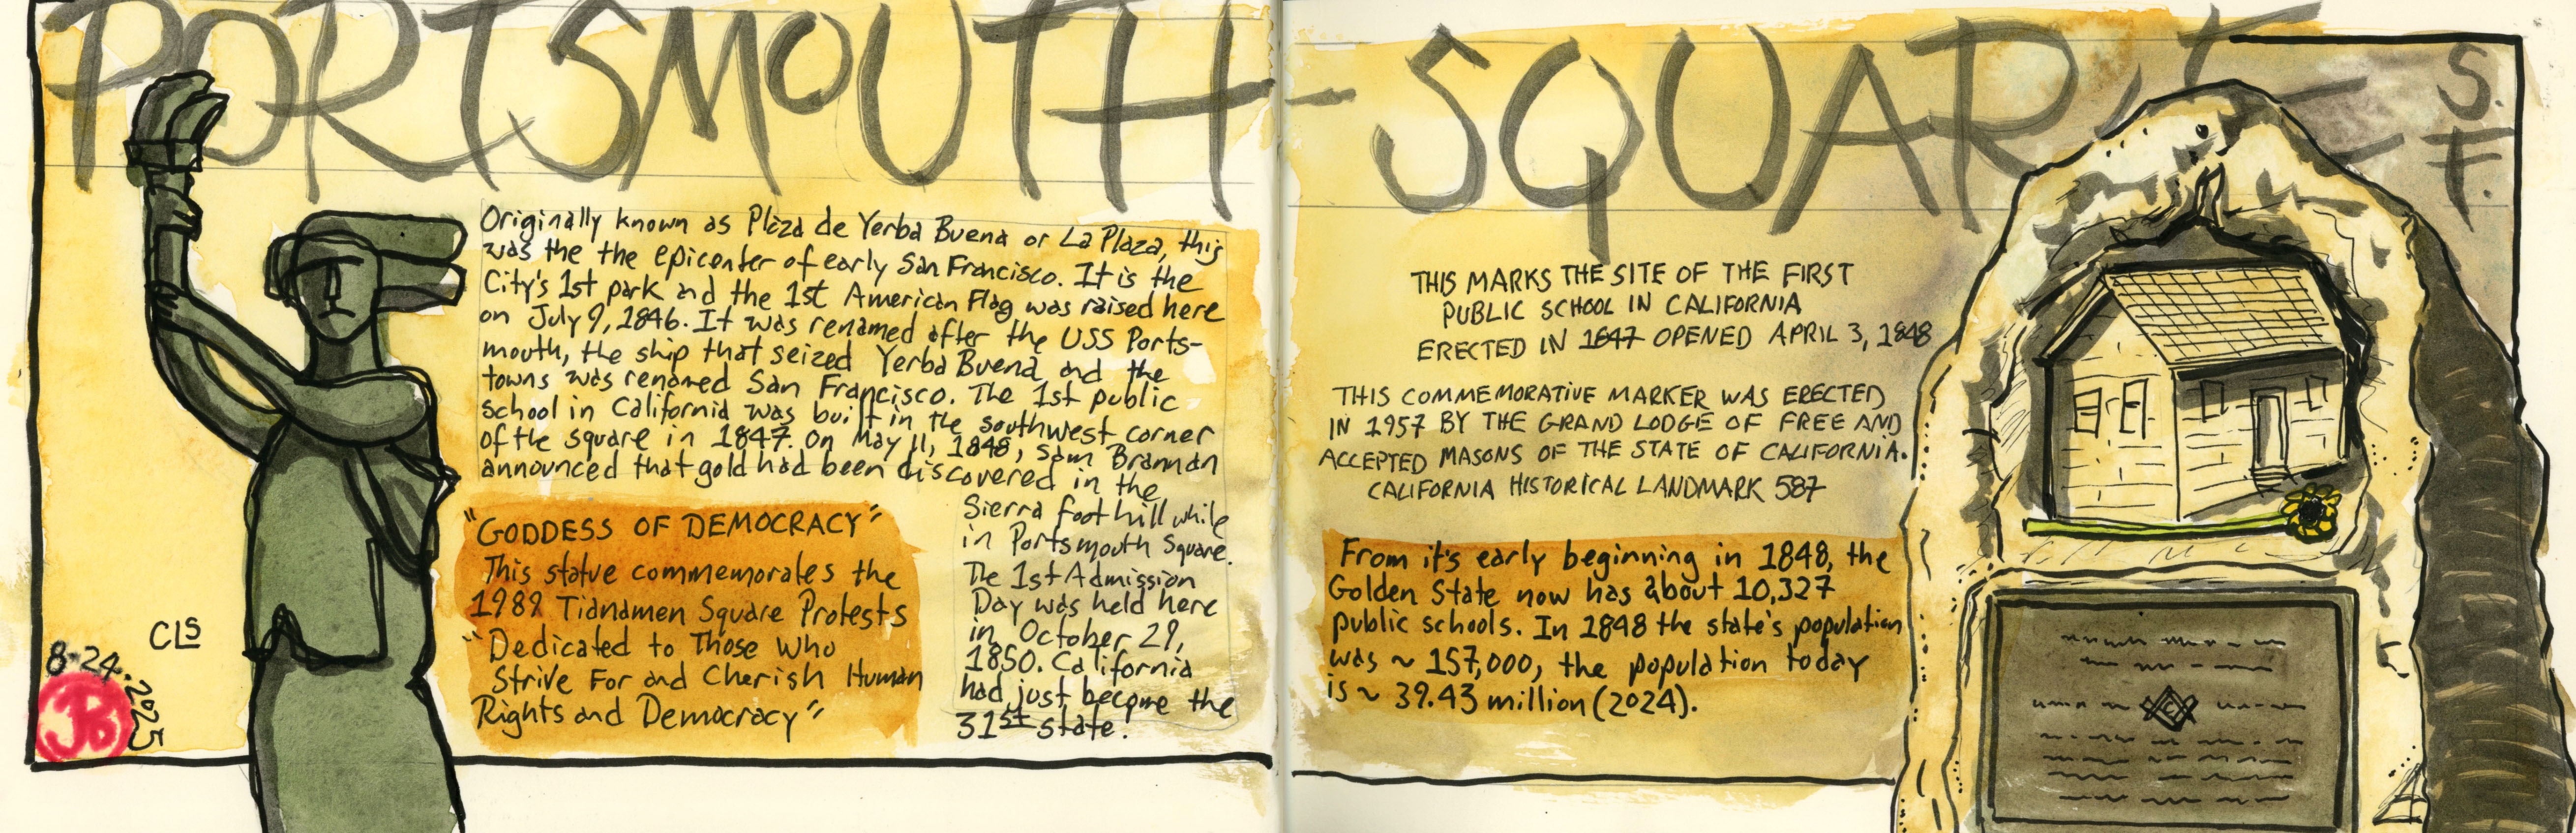 PORTSMOUTH-SQUARE
S.F.
Originally known as Plaza de Yerba Buena or La Plaza, this
was the the epicenter of early San Francisco. It is the
City's 1st park and the 1st American Flag was raised here
on July 9, 1846. It was renamed after the USS Ports-
mouth, the ship that seized Yerba Buena and the
towns was renamed San Francisco. The 1st public
school in California was built in the southwest corner
of the square in 1847. On May 11, 1848, Sam Brannan
announced that gold had been discovered in the
Sierra foothill while
in Portsmouth Square.
The 1st Admission
Day was held here
in October 29,
1850. California
had just become the
31st state.
"GODDESS OF DEMOCRACY"
This statue commemorates the
1989 Tianamen Square Protests
"Dedicated to Those Who
Strive For and Cherish Human
Rights and Democracy"
CLS
8.24.2025
JB
THIS MARKS THE SITE OF THE FIRST
PUBLIC SCHOOL IN CALIFORNIA
ERECTED IN 1847 OPENED APRIL 3, 1848
THIS COMMEMORATIVE MARKER WAS ERECTED
IN 1957 BY THE GRAND LODGE OF FREE AND
ACCEPTED MASONS OF THE STATE OF CALIFORNIA.
CALIFORNIA HISTORICAL LANDMARK 587
From it's early beginning in 1848, the
Golden State now has about 10,327
public schools. In 1848 the state's population
was ~ 157,000, the population today
is ~ 39.43 million (2024).